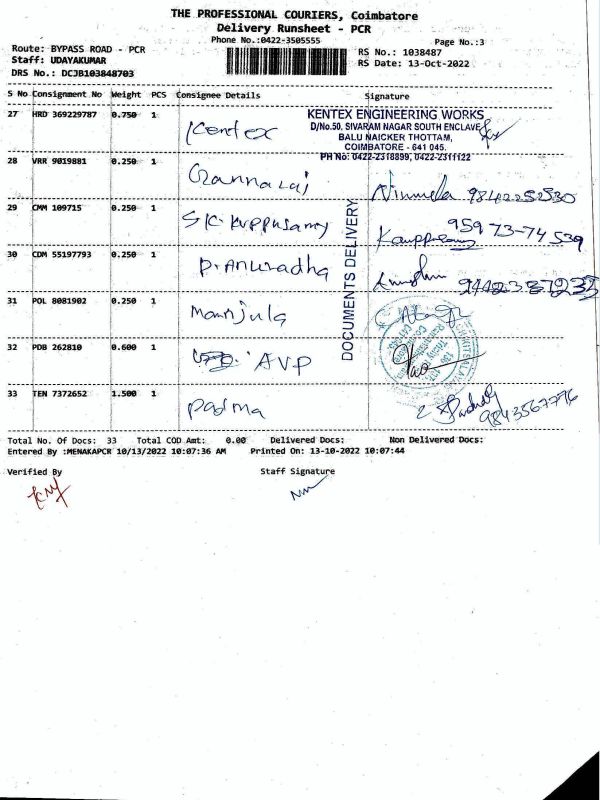 THE PROFESSIONAL COURIERS, Coimbatore
Delivery Runsheet - PCR
Phone No.:0422-3505555
Page No.:3
Route: BYPASS ROAD - PCR
RS No.: 1038487
Staff: UDAYAKUMAR
RS Date: 13-Oct-2022
DRS No.: DCJB103848703
S No Consignment No Weight PCS Consignee Details Signature
27 HRD 369229787 0.750 1 Kentex
KENTEX ENGINEERING WORKS
D/No.50, SIVARAM NAGAR SOUTH ENCLAVE
BALU NAICKER THOTTAM,
COIMBATORE - 641 045.
PH No: 0422-2318899, 0422-2311122
28 VRR 9019881 0.250 1 Nirmala 9842252530
29 CMM 109715 0.250 1 S.K. Kuppusamy 95973-74539
30 CDM 55197793 0.250 1 P. Anuradha
DOCUMENTS DELIVERY
31 POL 8081902 0.250 1 Manjula
32 PDB 262810 0.600 1 AVP
33 TEN 7372652 1.500 1 Padma 9843567776
Total No. Of Docs: 33 Total COD Amt: 0.00 Delivered Docs: Non Delivered Docs:
Entered By :MENAKAPCR 10/13/2022 10:07:36 AM Printed On: 13-10-2022 10:07:44
Verified By Staff Signature